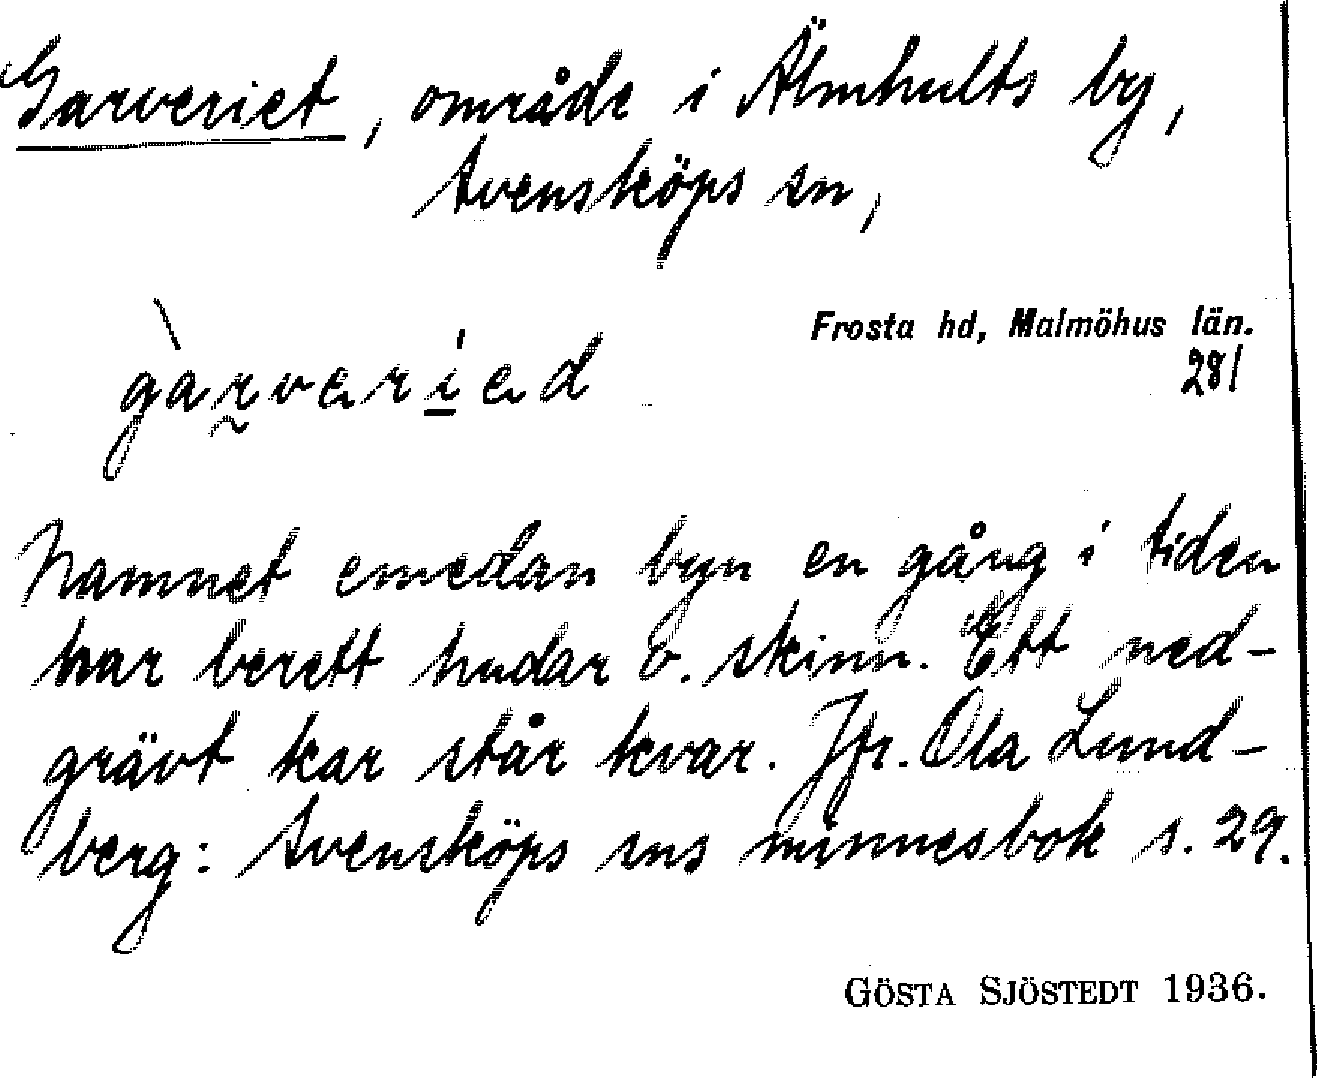 Garveriet, område i Älmhults by,
Svensköps sn,
Frosta hd, Malmöhus län.
281
gàrveried
Namnet emedan byn en gång i tiden
har berett hudar o. skinn. Ett ned-
grävt kar står kvar. Jfr. Ola Lund-
berg: Svensköps sns minnesbok s. 29.
GÖSTA SJÖSTEDT 1936.